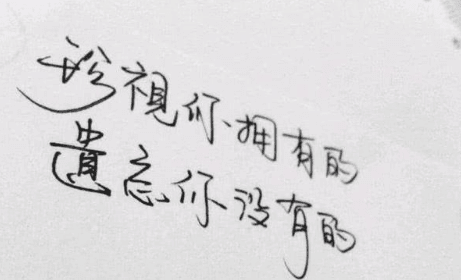 珍視你拥有的
遺忘你没有的